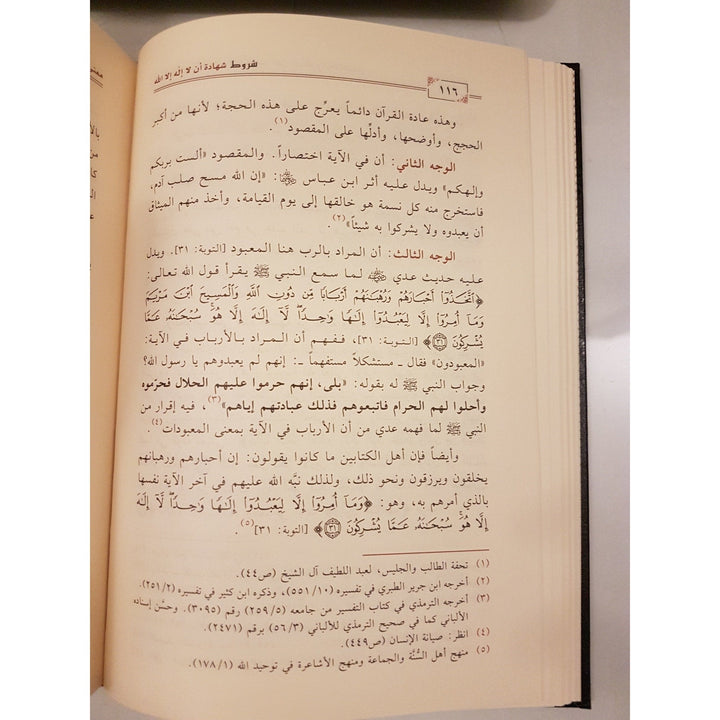 شروط شهادة أن لا إله إلا الله
١١٦
وهذه عادة القرآن دائماً يعرِّج على هذه الحجة؛ لأنها من أكبر
الحجج، وأوضحها، وأدلِّها على المقصود(١).
الوجه الثاني: أن في الآية اختصاراً. والمقصود «ألست بربكم
وإلهكم» ويدل عليه أثر ابن عباس ﵁: «إن الله مسح صلب آدم،
فاستخرج منه كل نسمة هو خالقها إلى يوم القيامة، وأخذ منهم الميثاق
أن يعبدوه ولا يشركوا به شيئاً»(٢).
الوجه الثالث: أن المراد بالرب هنا المعبود [التوبة: ٣١]. ويدل
عليه حديث عدي ﵁ لما سمع النبي ﷺ يقرأ قول الله تعالى:
﴿ٱتَّخَذُوٓا۟ أَحْبَارَهُمْ وَرُهْبَٰنَهُمْ أَرْبَابًا مِّن دُونِ ٱللَّهِ وَٱلْمَسِيحَ ٱبْنَ مَرْيَمَ
وَمَآ أُمِرُوٓا۟ إِلَّا لِيَعْبُدُوٓا۟ إِلَٰهًا وَٰحِدًا ۖ لَّآ إِلَٰهَ إِلَّا هُوَ ۚ سُبْحَٰنَهُۥ عَمَّا
يُشْرِكُونَ ﴿٣١﴾﴾ [التوبة: ٣١]، ففهم أن المراد بالأرباب في الآية:
«المعبودون» فقال ـ مستشكلاً مستفهماً ـ: إنهم لم يعبدوهم يا رسول الله؟
وجواب النبي ﷺ له بقوله: «بلى، إنهم حرموا عليهم الحلال فحرّموه
وأحلوا لهم الحرام فاتبعوهم فذلك عبادتهم إياهم»(٣)، فيه إقرار من
النبي ﷺ لما فهمه عدي من أن الأرباب في الآية بمعنى المعبودات(٤).
وأيضاً فإن أهل الكتابين ما كانوا يقولون: إن أحبارهم ورهبانهم
يخلقون ويرزقون ونحو ذلك، ولذلك نبَّه الله عليهم في آخر الآية نفسها
بالذي أمرهم به، وهو: ﴿وَمَآ أُمِرُوٓا۟ إِلَّا لِيَعْبُدُوٓا۟ إِلَٰهًا وَٰحِدًا ۖ لَّآ إِلَٰهَ
إِلَّا هُوَ ۚ سُبْحَٰنَهُۥ عَمَّا يُشْرِكُونَ ﴿٣١﴾﴾ [التوبة: ٣١](٥).
(١) تحفة الطالب والجليس، لعبد اللطيف آل الشيخ (ص٤٤).
(٢) أخرجه ابن جرير الطبري في تفسيره (٥٥١/١٠)، وذكره ابن كثير في تفسيره (٢٥١/٢).
(٣) أخرجه الترمذي في كتاب التفسير من جامعه (٢٥٩/٥) رقم (٣٠٩٥). وحسَّن إسناده
الألباني كما في صحيح الترمذي للألباني (٥٦/٣) برقم (٢٤٧١).
(٤) انظر: صيانة الإنسان (ص٤٤٩).
(٥) منهج أهل السُّنَّة والجماعة ومنهج الأشاعرة في توحيد الله (١٧٨/١).